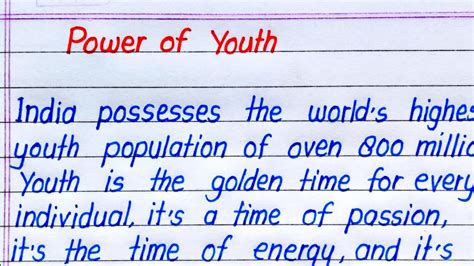 Power of Youth
India possesses the world's highes
youth population of oven 800 millio
Youth is the golden time for every
individual, it's a time of passion,
it's the time of energy, and it's